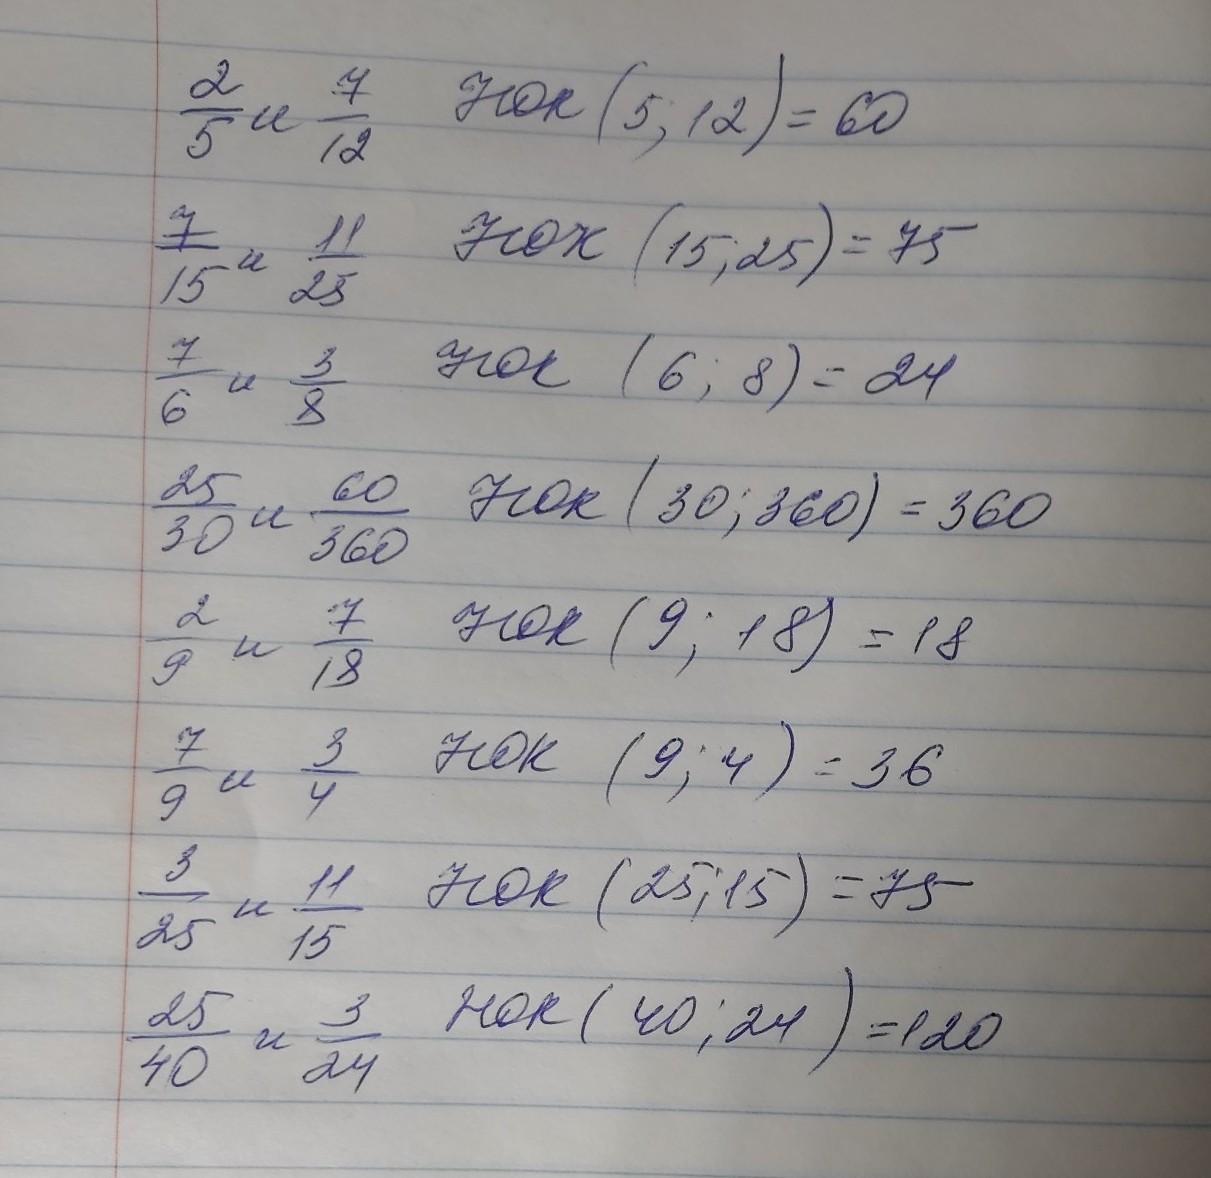 2/5 и 7/12 НОК (5; 12) = 60
7/15 и 11/25 НОК (15; 25) = 75
7/6 и 3/8 НОК (6; 8) = 24
25/30 и 60/360 НОК (30; 360) = 360
2/9 и 7/18 НОК (9; 18) = 18
7/9 и 3/4 НОК (9; 4) = 36
3/25 и 11/15 НОК (25; 15) = 75
25/40 и 3/24 НОК (40; 24) = 120